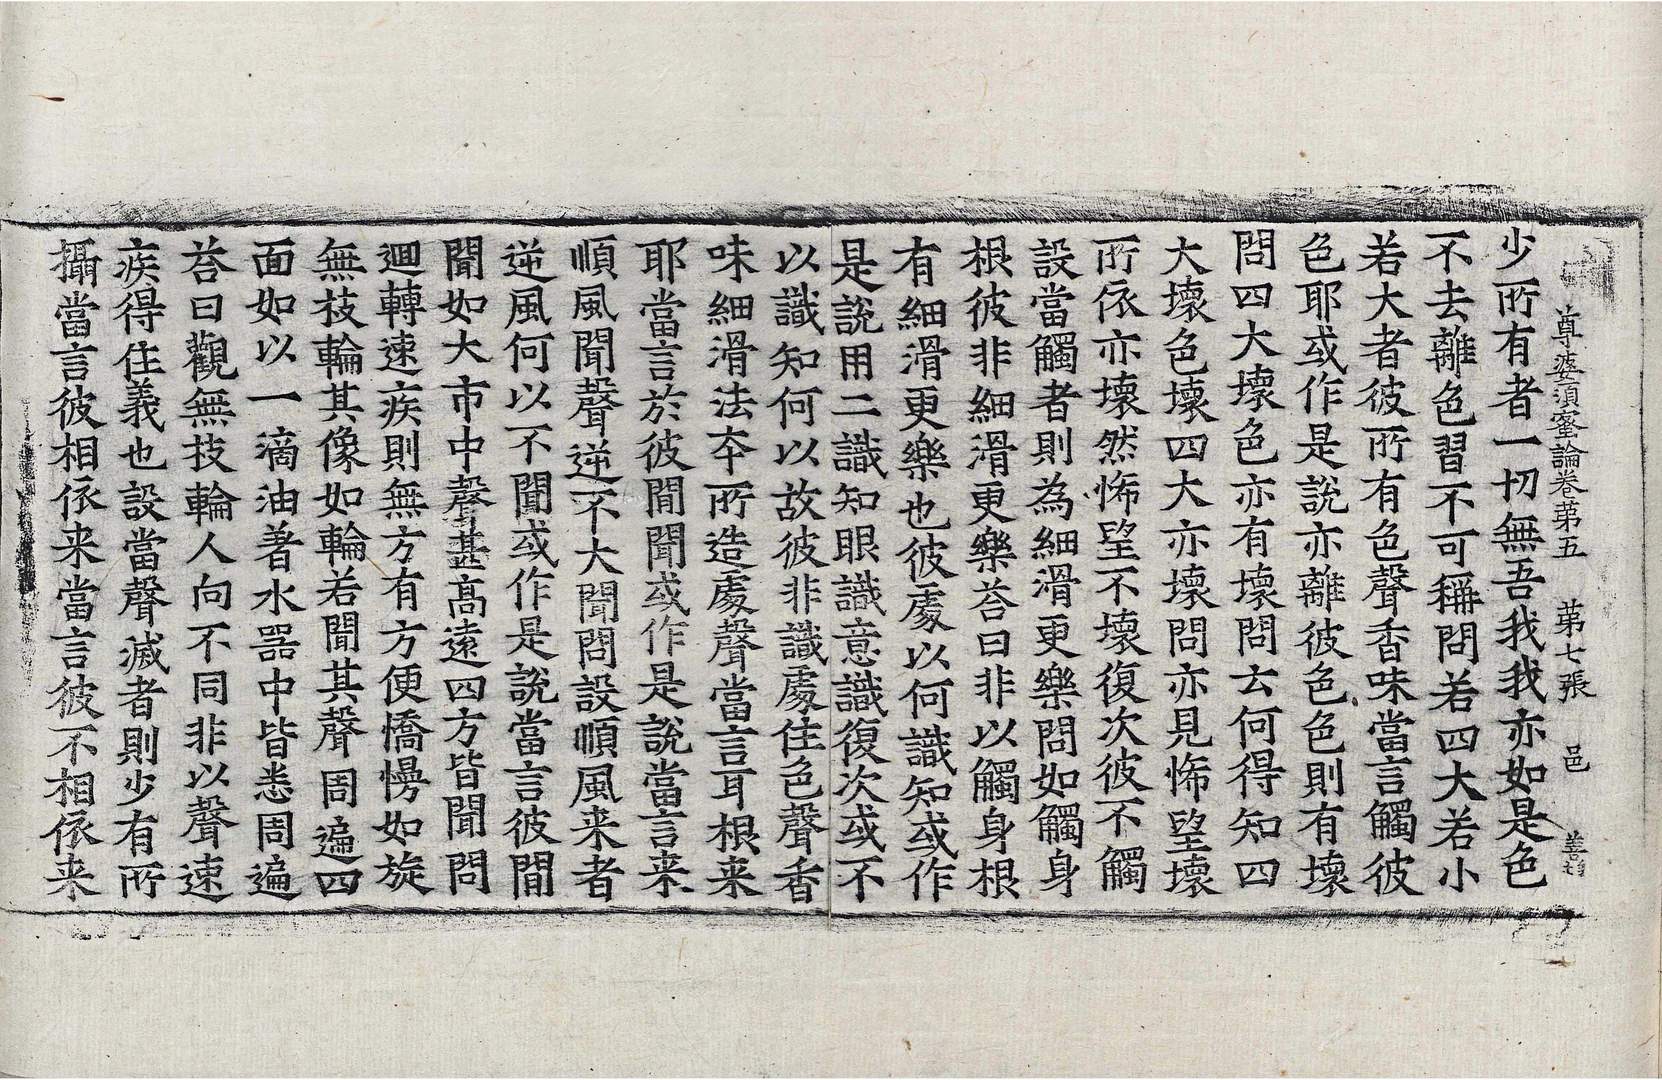 尊婆須蜜論卷第五 第七張 邑
少所有者一切無吾我我亦如是色
不去離色習不可稱問若四大若小
若大者彼所有色聲香味當言觸彼
色耶或作是說亦離彼色色則有壞
問四大壞色亦有壞問云何得知四
大壞色壞四大亦壞問亦見悕望壞
所依亦壞然悕望不壞復次彼不觸
設當觸者則為細滑更樂問如觸身
根彼非細滑更樂荅曰非以觸身根
有細滑更樂也彼處以何識知或作
是說用二識知眼識意識復次或不
以識知何以故彼非識處住色聲香
味細滑法夲所造處聲當言耳根来
耶當言於彼聞聞或作是說當言来
順風聞聲逆不大聞問設順風来者
逆風何以不聞或作是說當言彼聞
聞如大市中聲甚高遠四方皆聞問
迴轉速疾則無方有方便憍慢如旋
無枝輪其像如輪若聞其聲周遍四
面如以一滴油著水器中皆悉周遍
荅曰觀無技輪人向不同非以聲速
疾得住義也設當聲滅者則少有所
攝當言彼相依来當言彼不相依来